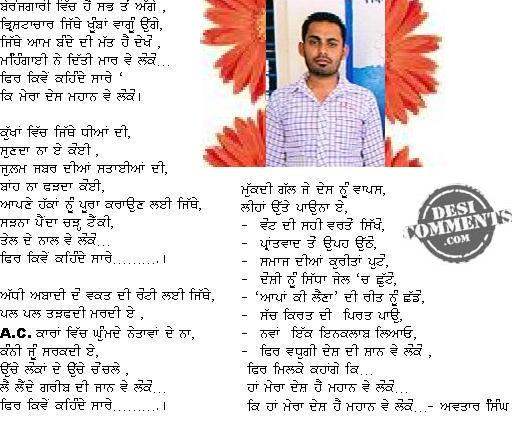 ਬੇਰੋਜ਼ਗਾਰੀ ਵਿੱਚ ਹੈ ਸਭ ਤੋਂ ਅੱਗੇ ,
ਭ੍ਰਿਸ਼ਟਾਚਾਰ ਜਿੱਥੇ ਖੂੰਬਾਂ ਵਾਗੂੰ ਉੱਗੇ,
ਜਿੱਥੇ ਆਮ ਬੰਦੇ ਦੀ ਮੱਤ ਹੈ ਦੇਖੋ ,
ਮਹਿੰਗਾਈ ਨੇ ਦਿੱਤੀ ਮਾਰ ਵੇ ਲੋਕੋ...
ਫਿਰ ਕਿਵੇਂ ਕਹਿੰਦੇ ਸਾਰੇ ‘
ਕਿ ਮੇਰਾ ਦੇਸ ਮਹਾਨ ਵੇ ਲੋਕੋ।
ਕੁੱਖਾਂ ਵਿੱਚ ਜਿੱਥੇ ਧੀਆਂ ਦੀ,
ਸੁਣਦਾ ਨਾ ਏ ਕੋਈ ,
ਜੁਲਮ ਜਬਰ ਦੀਆਂ ਸਤਾਈਆਂ ਦੀ,
ਬਾਂਹ ਨਾ ਫੜਦਾ ਕੋਈ,
ਆਪਣੇ ਹੱਕਾਂ ਨੂੰ ਪੂਰਾ ਕਰਾਉਣ ਲਈ ਜਿੱਥੇ,
ਸੜਨਾ ਪੈਂਦਾ ਚੜ੍ਹ ਟੈਂਕੀ,
ਤੇਲ ਦੇ ਨਾਲ ਵੇ ਲੋਕੋ...
ਫਿਰ ਕਿਵੇਂ ਕਹਿੰਦੇ ਸਾਰੇ..........।
ਅੱਧੀ ਅਬਾਦੀ ਦੋ ਵਕਤ ਦੀ ਰੋਟੀ ਲਈ ਜਿੱਥੇ,
ਪਲ ਪਲ ਤੜਫਦੀ ਮਰਦੀ ਏ ,
A.C. ਕਾਰਾਂ ਵਿੱਚ ਘੁੰਮਦੇ ਨੇਤਾਵਾਂ ਦੇ ਨਾ,
ਕੰਨੀ ਜੂੰ ਸਰਕਦੀ ਏ,
ਉੱਚੇ ਲੋਕਾਂ ਦੇ ਉੱਚੇ ਚੋਂਚਲੇ ,
ਲੈ ਲੈਂਦੇ ਗਰੀਬ ਦੀ ਜਾਨ ਵੇ ਲੋਕੋ...
ਫਿਰ ਕਿਵੇਂ ਕਹਿੰਦੇ ਸਾਰੇ..........।
ਮੁੱਕਦੀ ਗੱਲ ਜੇ ਦੇਸ ਨੂੰ ਵਾਪਸ,
ਲੀਹਾਂ ਉੱਤੇ ਪਾਉਨਾ ਏ,
- ਵੋਟ ਦੀ ਸਹੀ ਵਰਤੋਂ ਸਿੱਖੋ,
- ਪ੍ਰਾਂਤਵਾਦ ਤੋਂ ਉਪਰ ਉੱਠੋ,
- ਸਮਾਜ ਦੀਆਂ ਕੁਰੀਤਾਂ ਪੁੱਟੋ,
- ਦੋਸ਼ੀ ਨੂੰ ਸਿੱਧਾ ਜੇਲ ‘ਚ ਛੁੱਟੋ,
- ‘ਆਪਾਂ ਕੀ ਲੈਣਾ’ ਦੀ ਰੀਤ ਨੂੰ ਛੱਡੋ,
- ਸੱਚ ਕਿਰਤ ਦੀ ਪਿਰਤ ਪਾਓ,
- ਨਵਾਂ ਇੱਕ ਇਨਕਲਾਬ ਲਿਆਓ,
- ਫਿਰ ਵਧੂਗੀ ਦੇਸ਼ ਦੀ ਸ਼ਾਨ ਵੇ ਲੋਕੋ ,
ਫਿਰ ਮਿਲਕੇ ਕਹਾਂਗੇ ਕਿ...
ਹਾਂ ਮੇਰਾ ਦੇਸ਼ ਹੈ ਮਹਾਨ ਵੇ ਲੋਕੋ...
ਕਿ ਹਾਂ ਮੇਰਾ ਦੇਸ਼ ਹੈ ਮਹਾਨ ਵੇ ਲੋਕੋ...- ਅਵਤਾਰ ਸਿੰਘ
DESI
COMMENTS
.COM